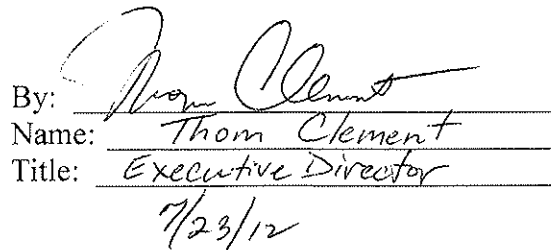 By: Thom Clement
Name: Thom Clement
Title: Executive Director
7/23/12